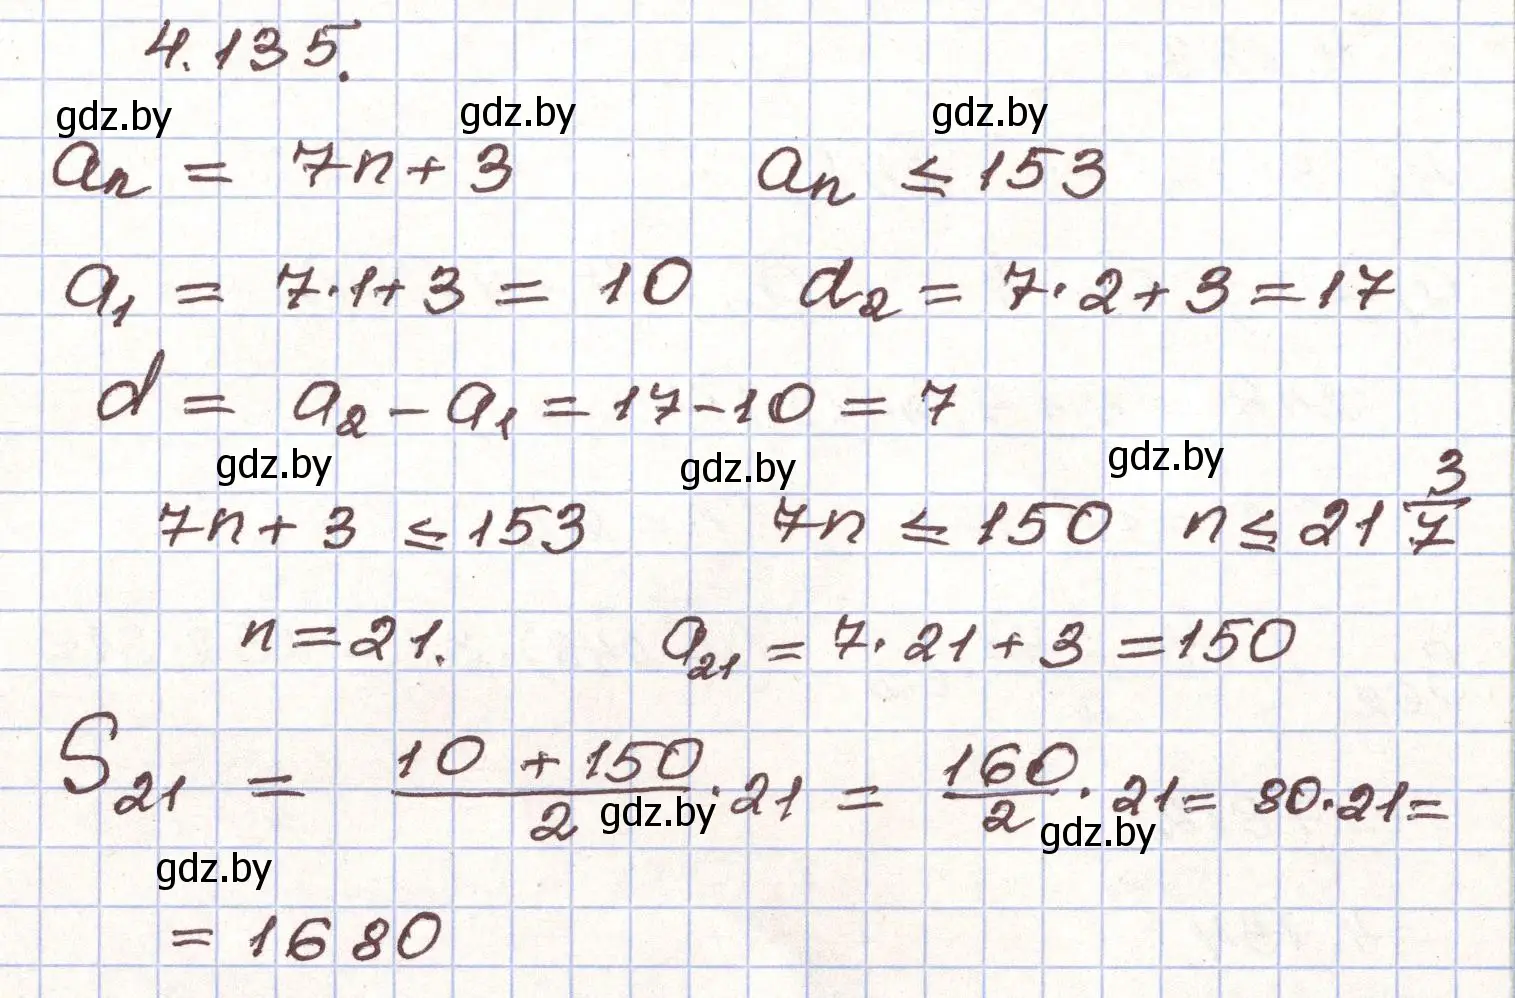 4.135.
gdz.by gdz.by gdz.by
aₙ = 7n + 3 aₙ ≤ 153
a₁ = 7·1+3 = 10 a₂ = 7·2+3=17
d = a₂ - a₁ = 17-10 = 7
gdz.by gdz.by gdz.by
7n + 3 ≤ 153 7n ≤ 150 n ≤ 21 3/7
n = 21. a₂₁ = 7·21 + 3 = 150
S₂₁ = (10 + 150)/2 · 21 = 160/2 · 21 = 80·21 =
gdz.by gdz.by
gdz.by
= 1680